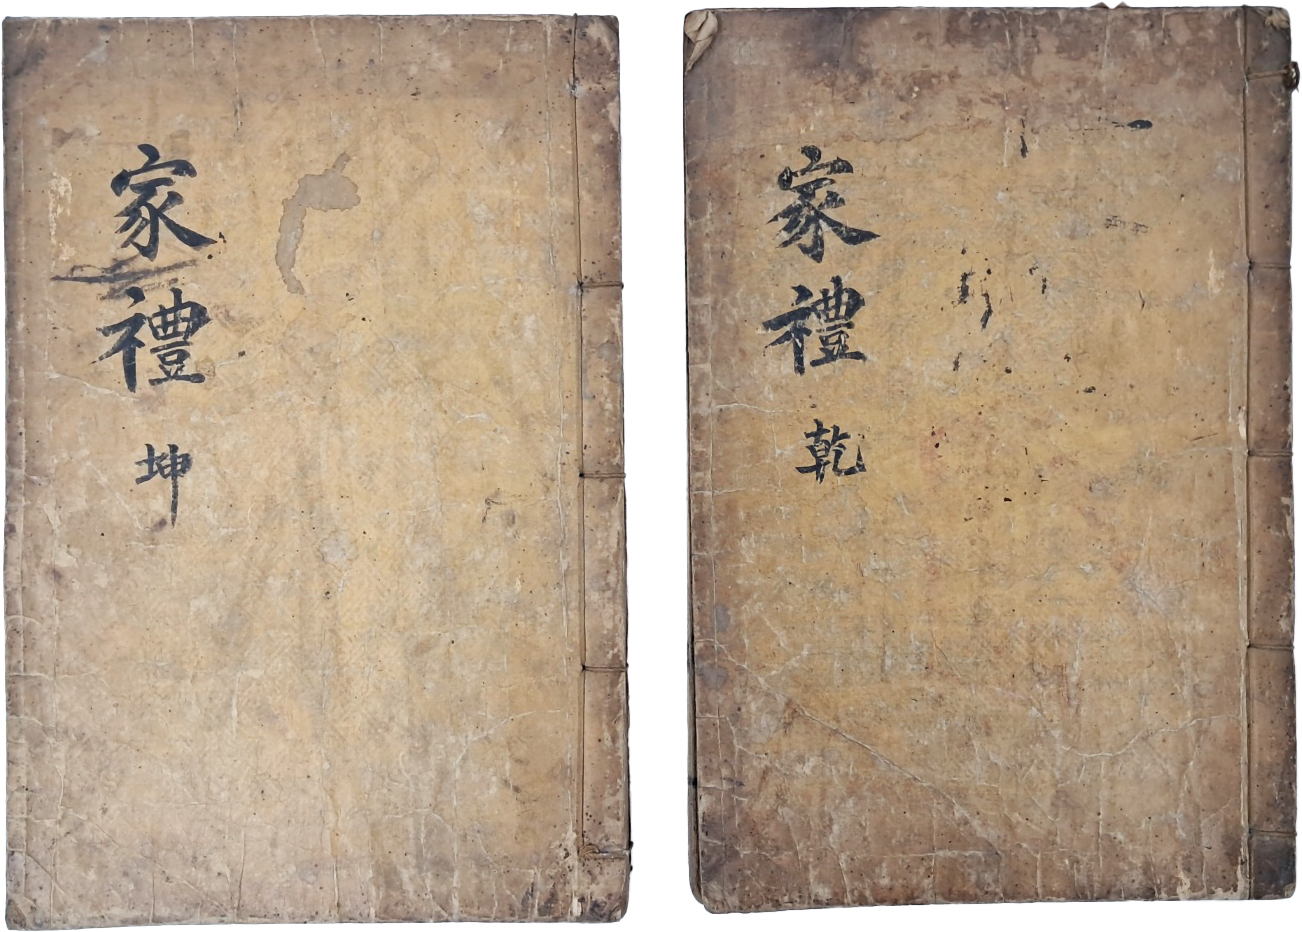 家禮 乾
家禮 坤